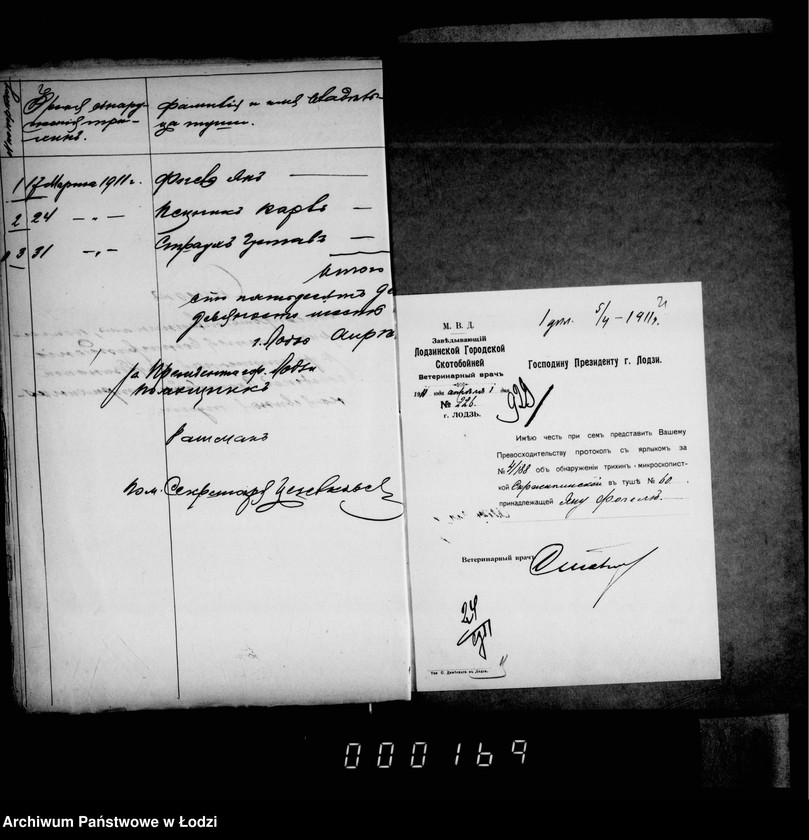 Время обнару-
жения три-
хинъ.
Фамилія и имя владѣль-
ца туши.
1 17 Марта 1911 г. Фогель Янъ —
2 24 -„- Карлъ —
3 31 -„- Страухъ Густавъ —
Итого
сто пятьдесятъ
девяносто шесть
г. Лодзь Апрѣ
За Президента гор. Лодзи
Пом. Секретаря
М. В. Д.
Завѣдывающій
Лодзинской Городской
Скотобойней
Ветеринарный врачъ
1911 года апрѣля 1 дня
№ 226.
г. ЛОДЗЬ.
5/4 – 1911 г.
929
Господину Президенту г. Лодзи.
Имѣю честь при семъ представить Вашему
Превосходительству протоколъ съ ярлыкомъ за
№ 4/188 объ обнаруженіи трихинъ - микроскопист-
кой въ тушѣ № 60
принадлежащей Яну Фогель.
Ветеринарный врачъ
24
Тип. С. Дембскаго въ Лодзи.
000169
Archiwum Państwowe w Łodzi